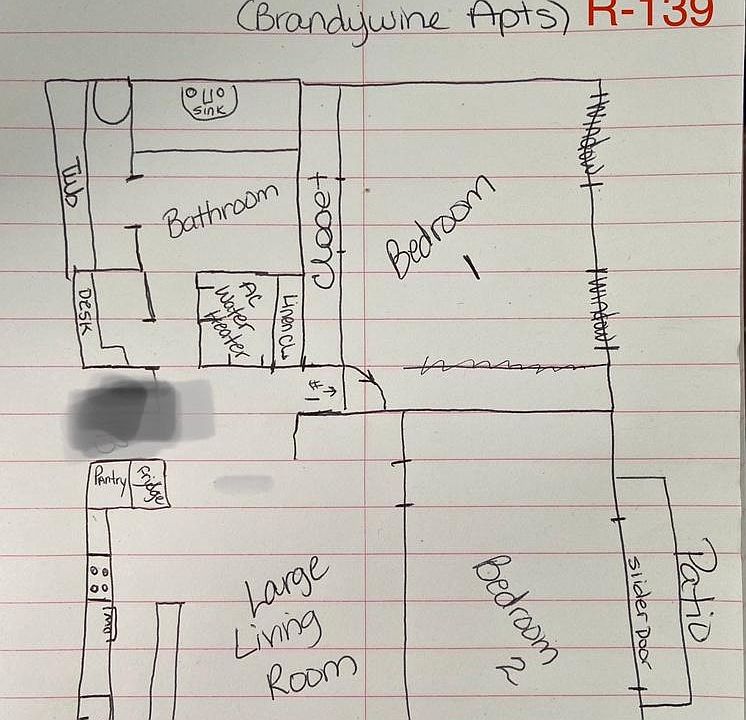 (Brandywine Apts) R-139
sink
Tub
Bathroom
Closet
Bedroom
1
Window
Window
Desk
AC
Water
Heater
Linen CL
#1
Pantry
Fridge
Large
Living
Room
Bedroom
2
slider Door
Patio